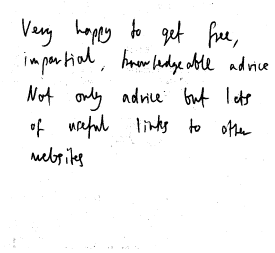 Very happy to get free,
impartial, knowledgeable advice
Not only advice but lots
of useful links to other
websites